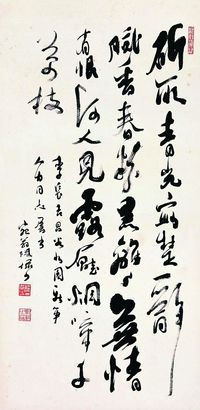 斫取青光寫楚辭
膩香春粉黑離離無情
有恨何人見露壓煙啼千
萬枝
李長吉昌谷北園新笋
同志屬書